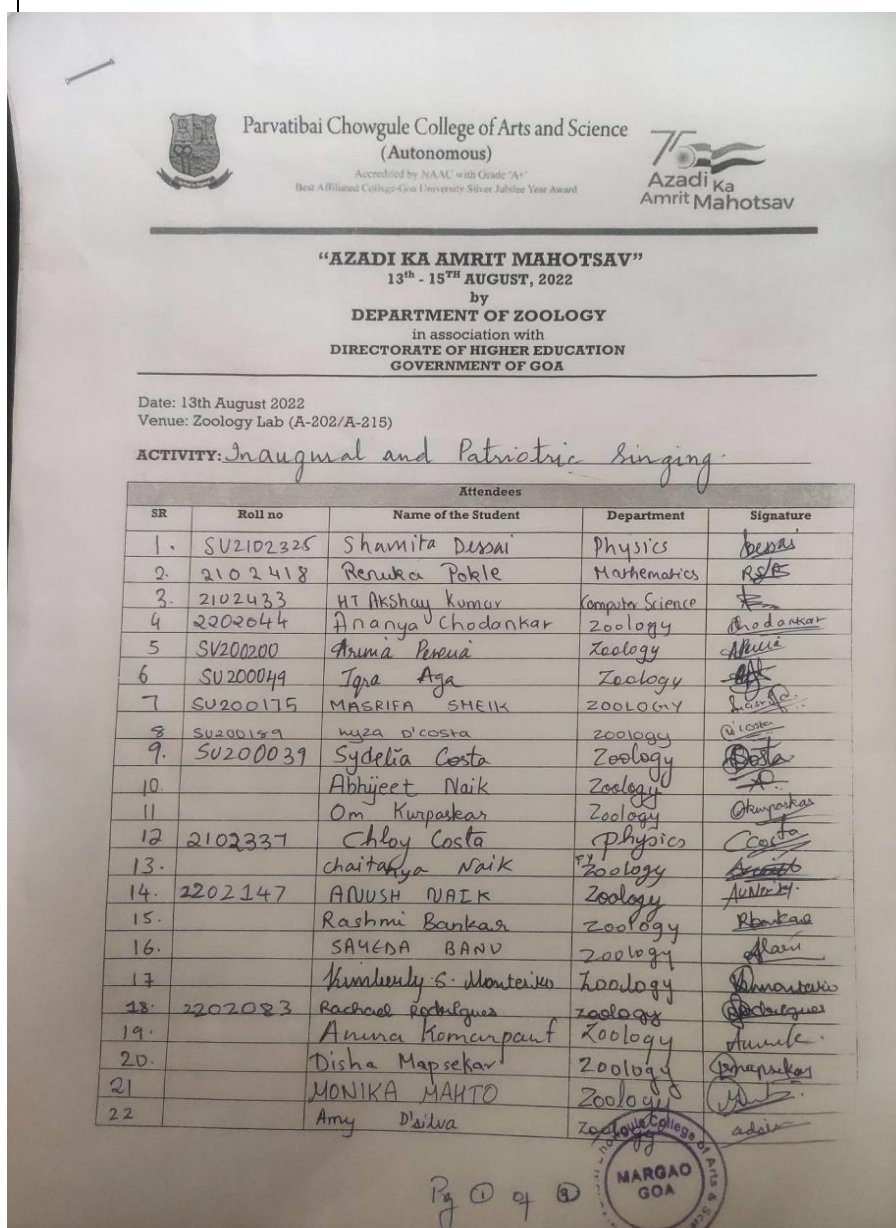 Parvatibai Chowgule College of Arts and Science
(Autonomous)
Accredited by NAAC with Grade 'A+'
Best Affiliated College-Goa University Silver Jubilee Year Award
75
Azadi Ka
Amrit Mahotsav
“AZADI KA AMRIT MAHOTSAV”
13th - 15TH AUGUST, 2022
by
DEPARTMENT OF ZOOLOGY
in association with
DIRECTORATE OF HIGHER EDUCATION
GOVERNMENT OF GOA
Date: 13th August 2022
Venue: Zoology Lab (A-202/A-215)
ACTIVITY: Inaugural and Patriotric Singing.
Attendees
SR Roll no Name of the Student Department Signature
1. SU2102325 Shamita Dessai Physics Dessai
2. 2102418 Renuka Pokle Mathematics
3. 2102433 HT Akshay Kumar Computer Science
4 2202044 Ananya Chodankar Zoology Chodankar
5 SU200200 Zoology
6 SU200049 Iqra Aga Zoology
7 SU200175 MASRIFA SHEIK ZOOLOGY
8 SU200189 nyza D'costa zoology D'costa
9. SU200039 Sydelia Costa Zoology Costa
10. Abhijeet Naik Zoology
11 Om Kurpaskar Zoology Okurpaskar
12 2102337 Chloy Costa Physics Ccosta
13. Chaitanya Naik F.Y Zoology
14. 2202147 ANUSH NAIK Zoology
15. Rashmi Bankar Zoology Rbankar
16. SAYEDA BANU Zoology
17 Kimberly S. Monteiro Zoology
18. 2202083 Rachael Rodrigues zoology Rodrigues
19. Komarpant Zoology
20. Disha Mapsekar Zoology Dmapsekar
21 MONIKA MAHTO Zoology
22 Amy D'silva Zoology
Chowgule College of Arts & Sci
MARGAO
GOA
Pg 1 of